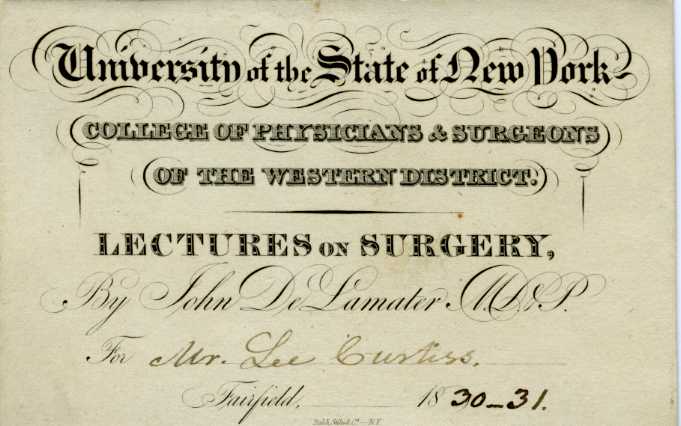 University of the State of New York
COLLEGE OF PHYSICIANS & SURGEONS
OF THE WESTERN DISTRICT.
LECTURES ON SURGERY,
By John De Lamater M.D.&P.
For Mr. Lee Curtiss.
Fairfield, 1830-31.